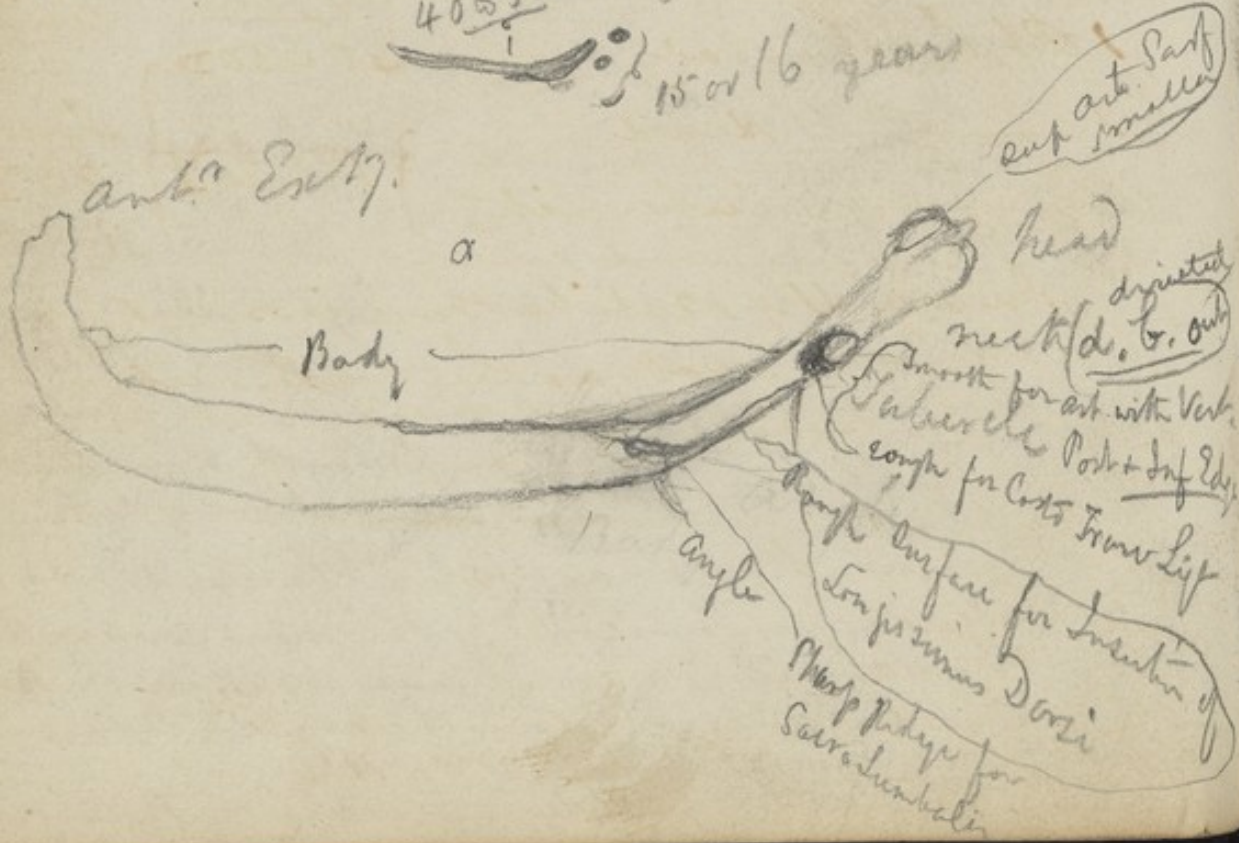 15 or 16 years
sup art. Surf
smaller
antr Exty.
head
a
directed
neck (d. b. out
Body
Smooth for art with Vert.
Tubercle
Post & Inf Edge
rough for Costo Transv Ligt
Rough Surface for Insertion of
Longissimus Dorsi
angle
Sharp Ridge for
Sacro Lumbalis